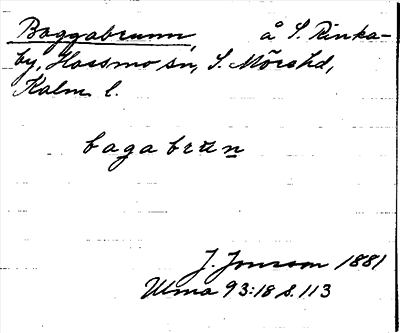 Baggabrunn, å S. Rinka-
by, Hossmo sn, S. Möre hd,
Kalm. l.
bagabrun
J. Jonsson 1881
Ulma 93:18 s. 113